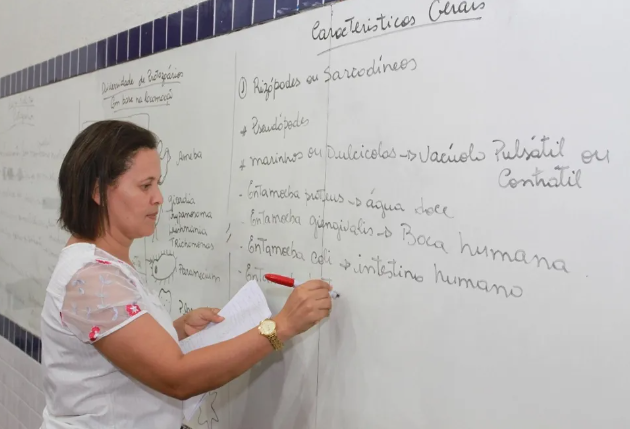 Diversidade de Protozoários
Com base na locomoção
Ameba
Giardia
Trypanosoma
Leishmania
Trichomonas
Paramecium
Características Gerais
① Rizópodes ou Sarcodíneos
* Pseudópodes
* marinhos ou Dulcícolas → Vacúolo Pulsátil ou
Contrátil
- Entamoeba proteus → água doce
- Entamoeba gengivalis → Boca humana
- Entamoeba coli → intestino humano
- Entam